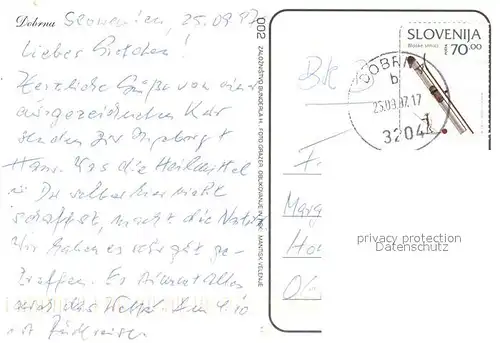 Dobrna Slowenien, 25.09.97
Liebes Gretchen!
Herzliche Grüße von einer
ausgezeichneten Kur
senden Dir Ingeborg +
Hans. Was die Heilmittel
in Dir selber nicht
schaffen, macht die Natur.
Wir haben es sehr gut ge-
troffen. Es stimmt Alles
und das Wetter. Am 4.10
ist Rückreise.
002 ZALOŽNIŠTVO BUNDERLA M. FOTO GRAZER OBLIKOVANJE IN TISK MANTISK VELENJE
Bk
SLOVENIJA
70.00
DOBRNA
b
25.09.97.17
3204
Marg
privacy protection
Datenschutz